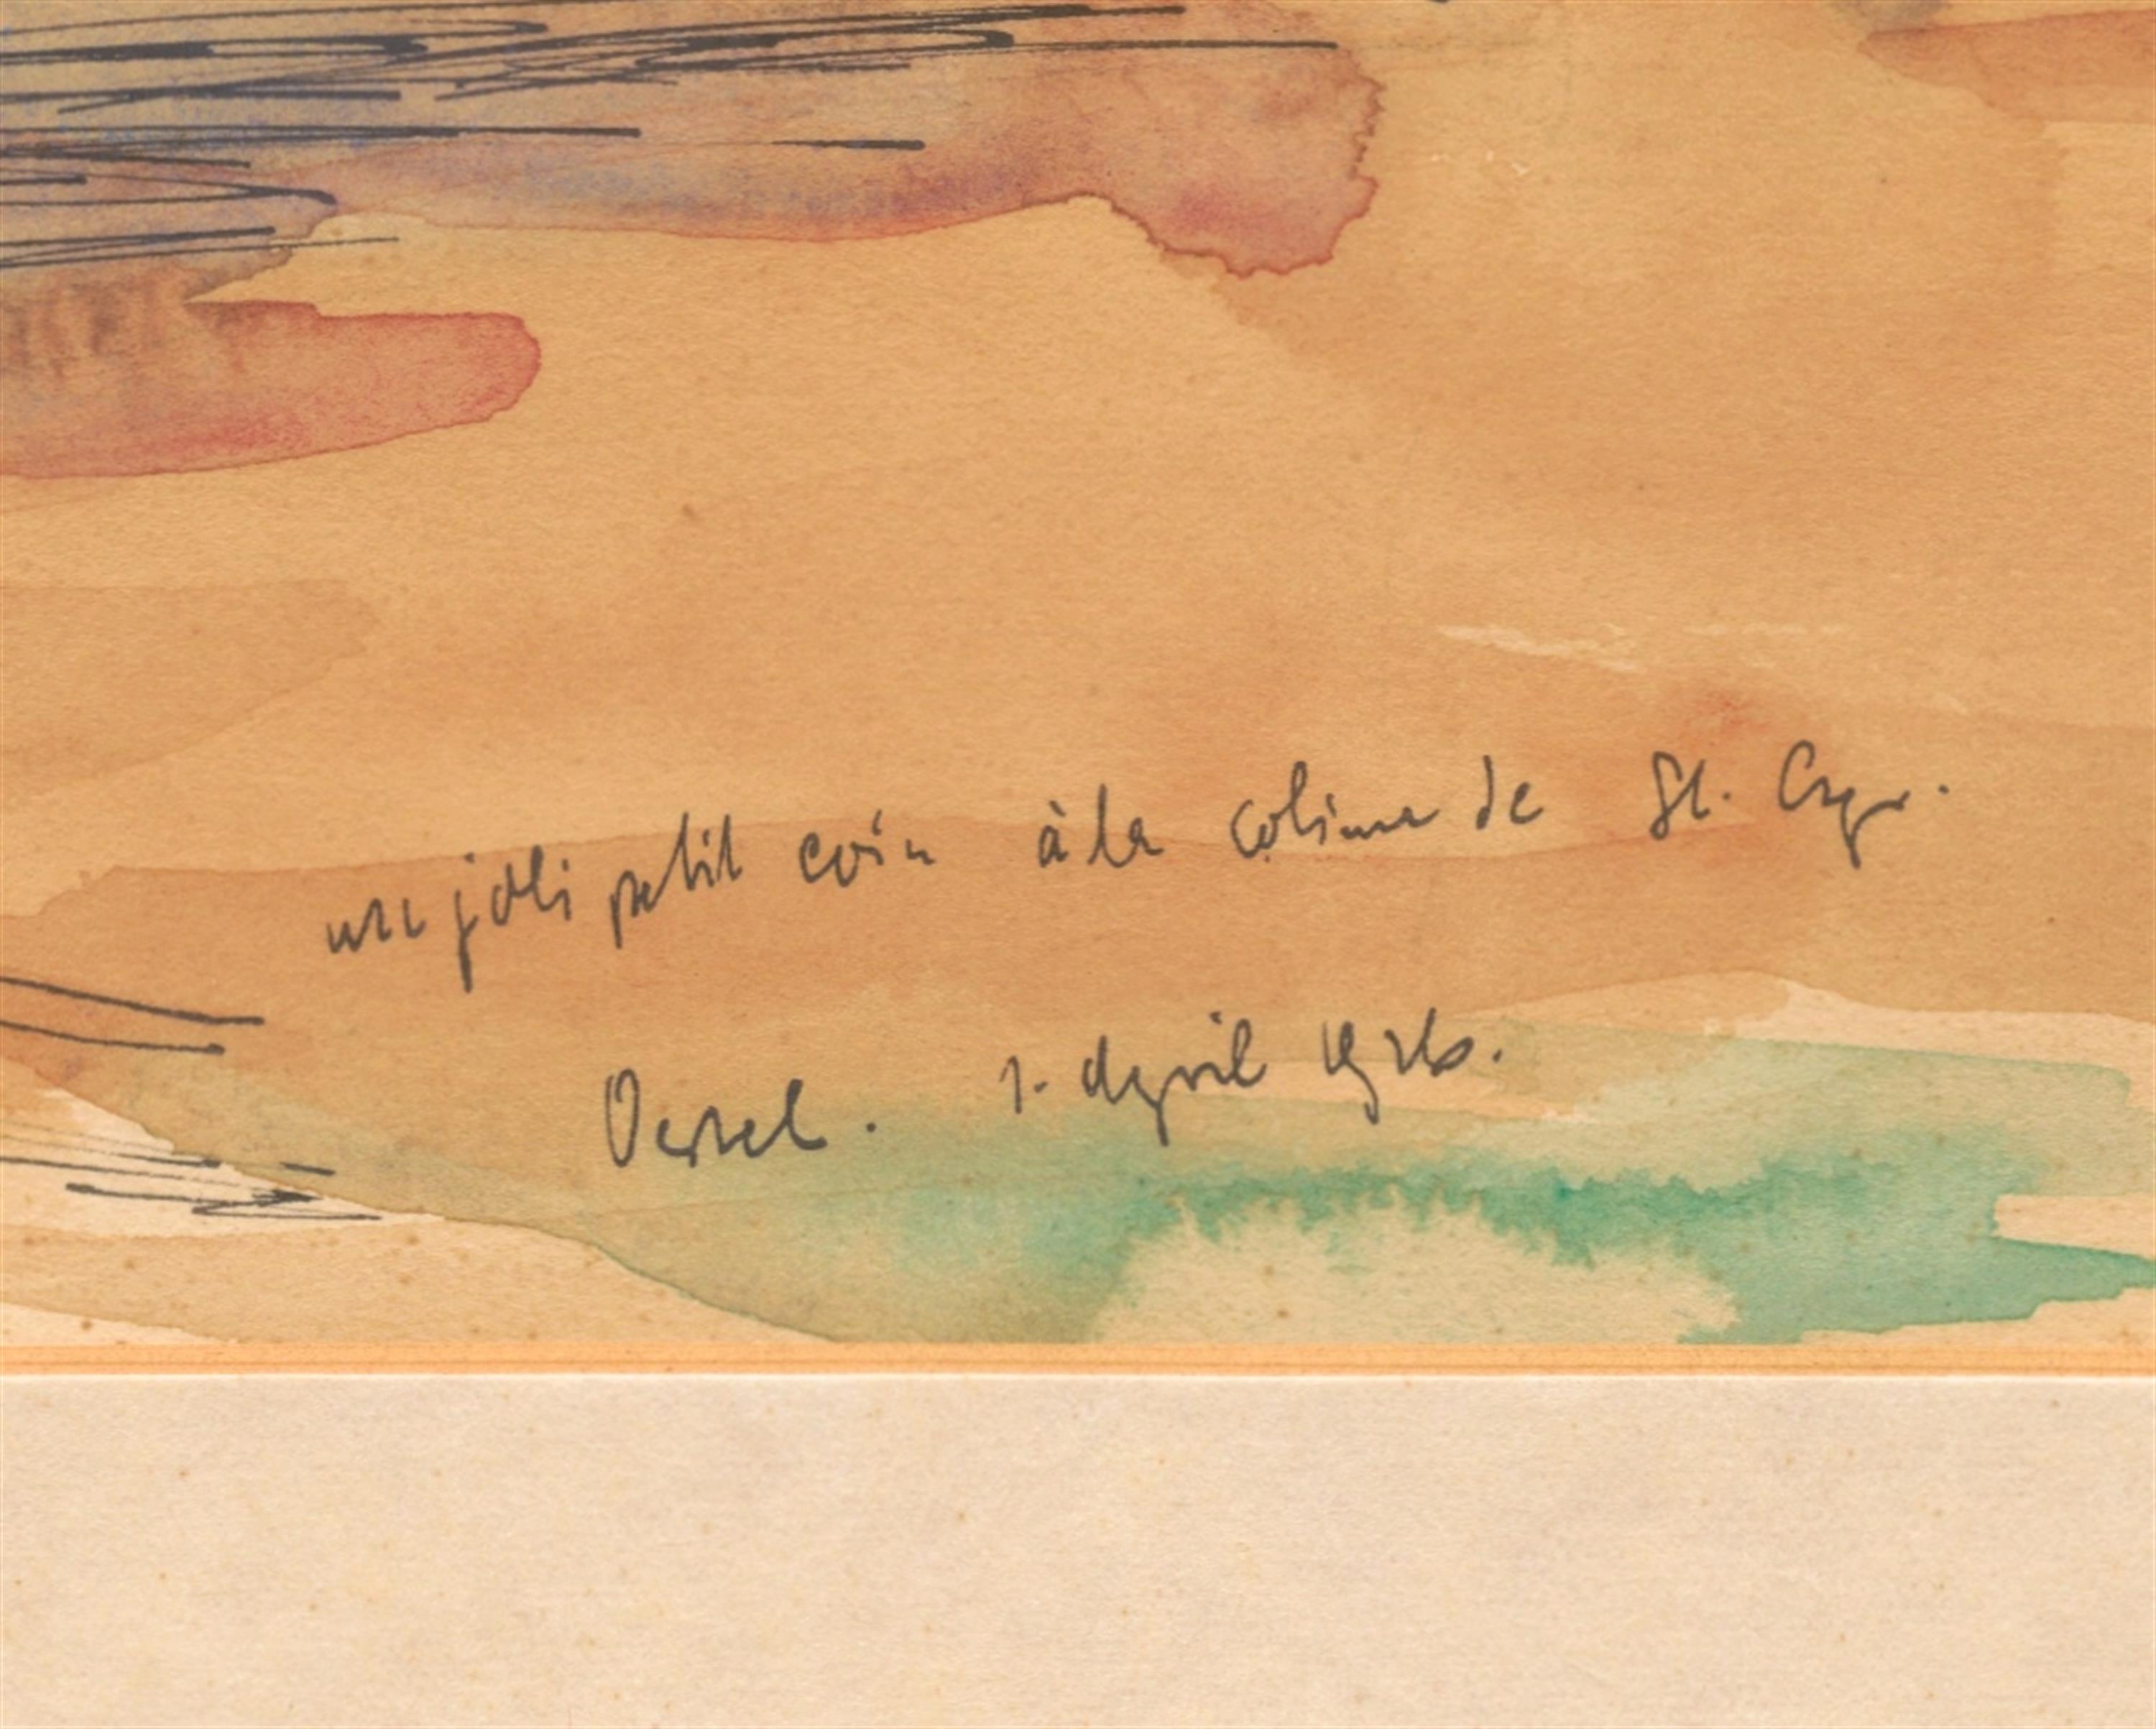 un joli petit coin à la coline de St. Cyr.
Oertel. 1. April 1926.